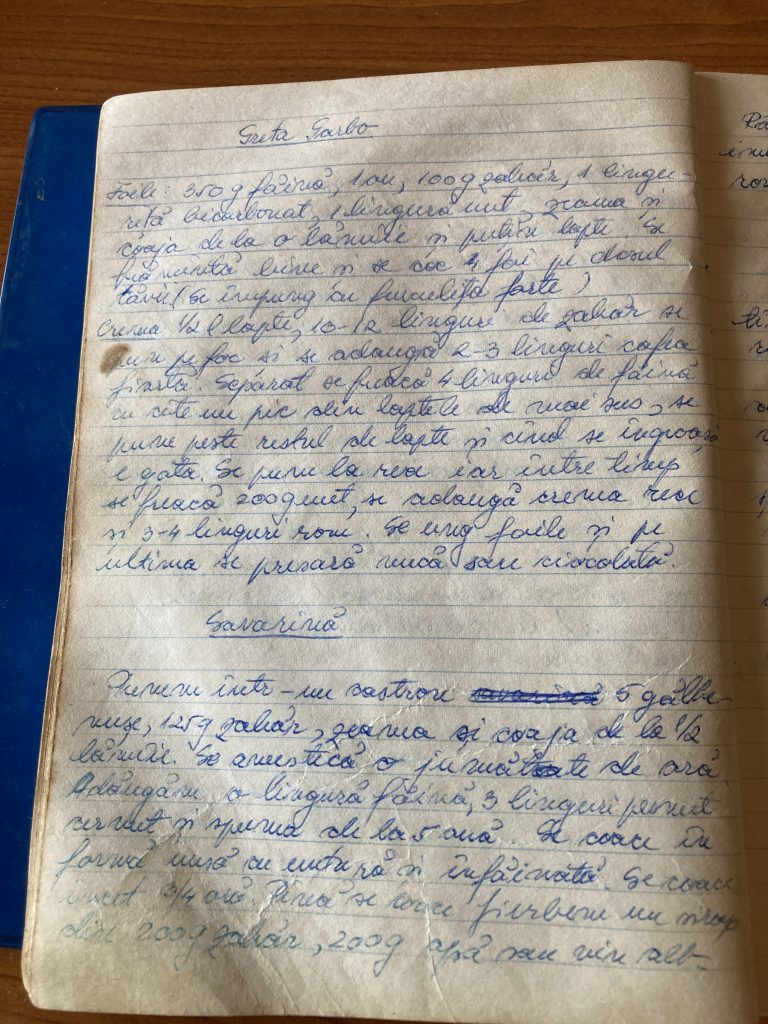 Greta Garbo
Foile: 350g făină, 1 ou, 100g zahăr, 1 lingu-
riță bicarbonat, 1 lingură unt, zeama și
coaja de la o lămîie și puțin lapte. Se
frămîntă bine și se coc 4 foi pe dosul
tăvii (Se împung cu furculița foarte)
Crema 1/2 l lapte, 10-12 linguri de zahăr se
pun pe foc și se adaugă 2-3 linguri cafea
fiartă. Separat se freacă 4 linguri de făină
cu cîte un pic din laptele de mai sus, se
pune peste restul de lapte și cînd se îngroașă
e gata. Se pune la rece iar între timp
se freacă 200g unt, se adaugă crema rece
și 3-4 linguri rom. Se ung foile și pe
ultima se presară nucă sau ciocolată.
Savarină
Punem într-un castron 5 gălbe-
nușe, 125g zahăr, zeama și coaja de la 1/2
lămîie. Se amestică o jumătate de oră
Adăugăm o lingură făină, 3 linguri pesmet
cernut și spuma de la 5 ouă. Se coace în
formă unsă cu untură și înfăinată. Se coace
încet 3/4 oră. Pînă se coace fierbem un sirop
din 200g zahăr, 200g apă sau vin alb-